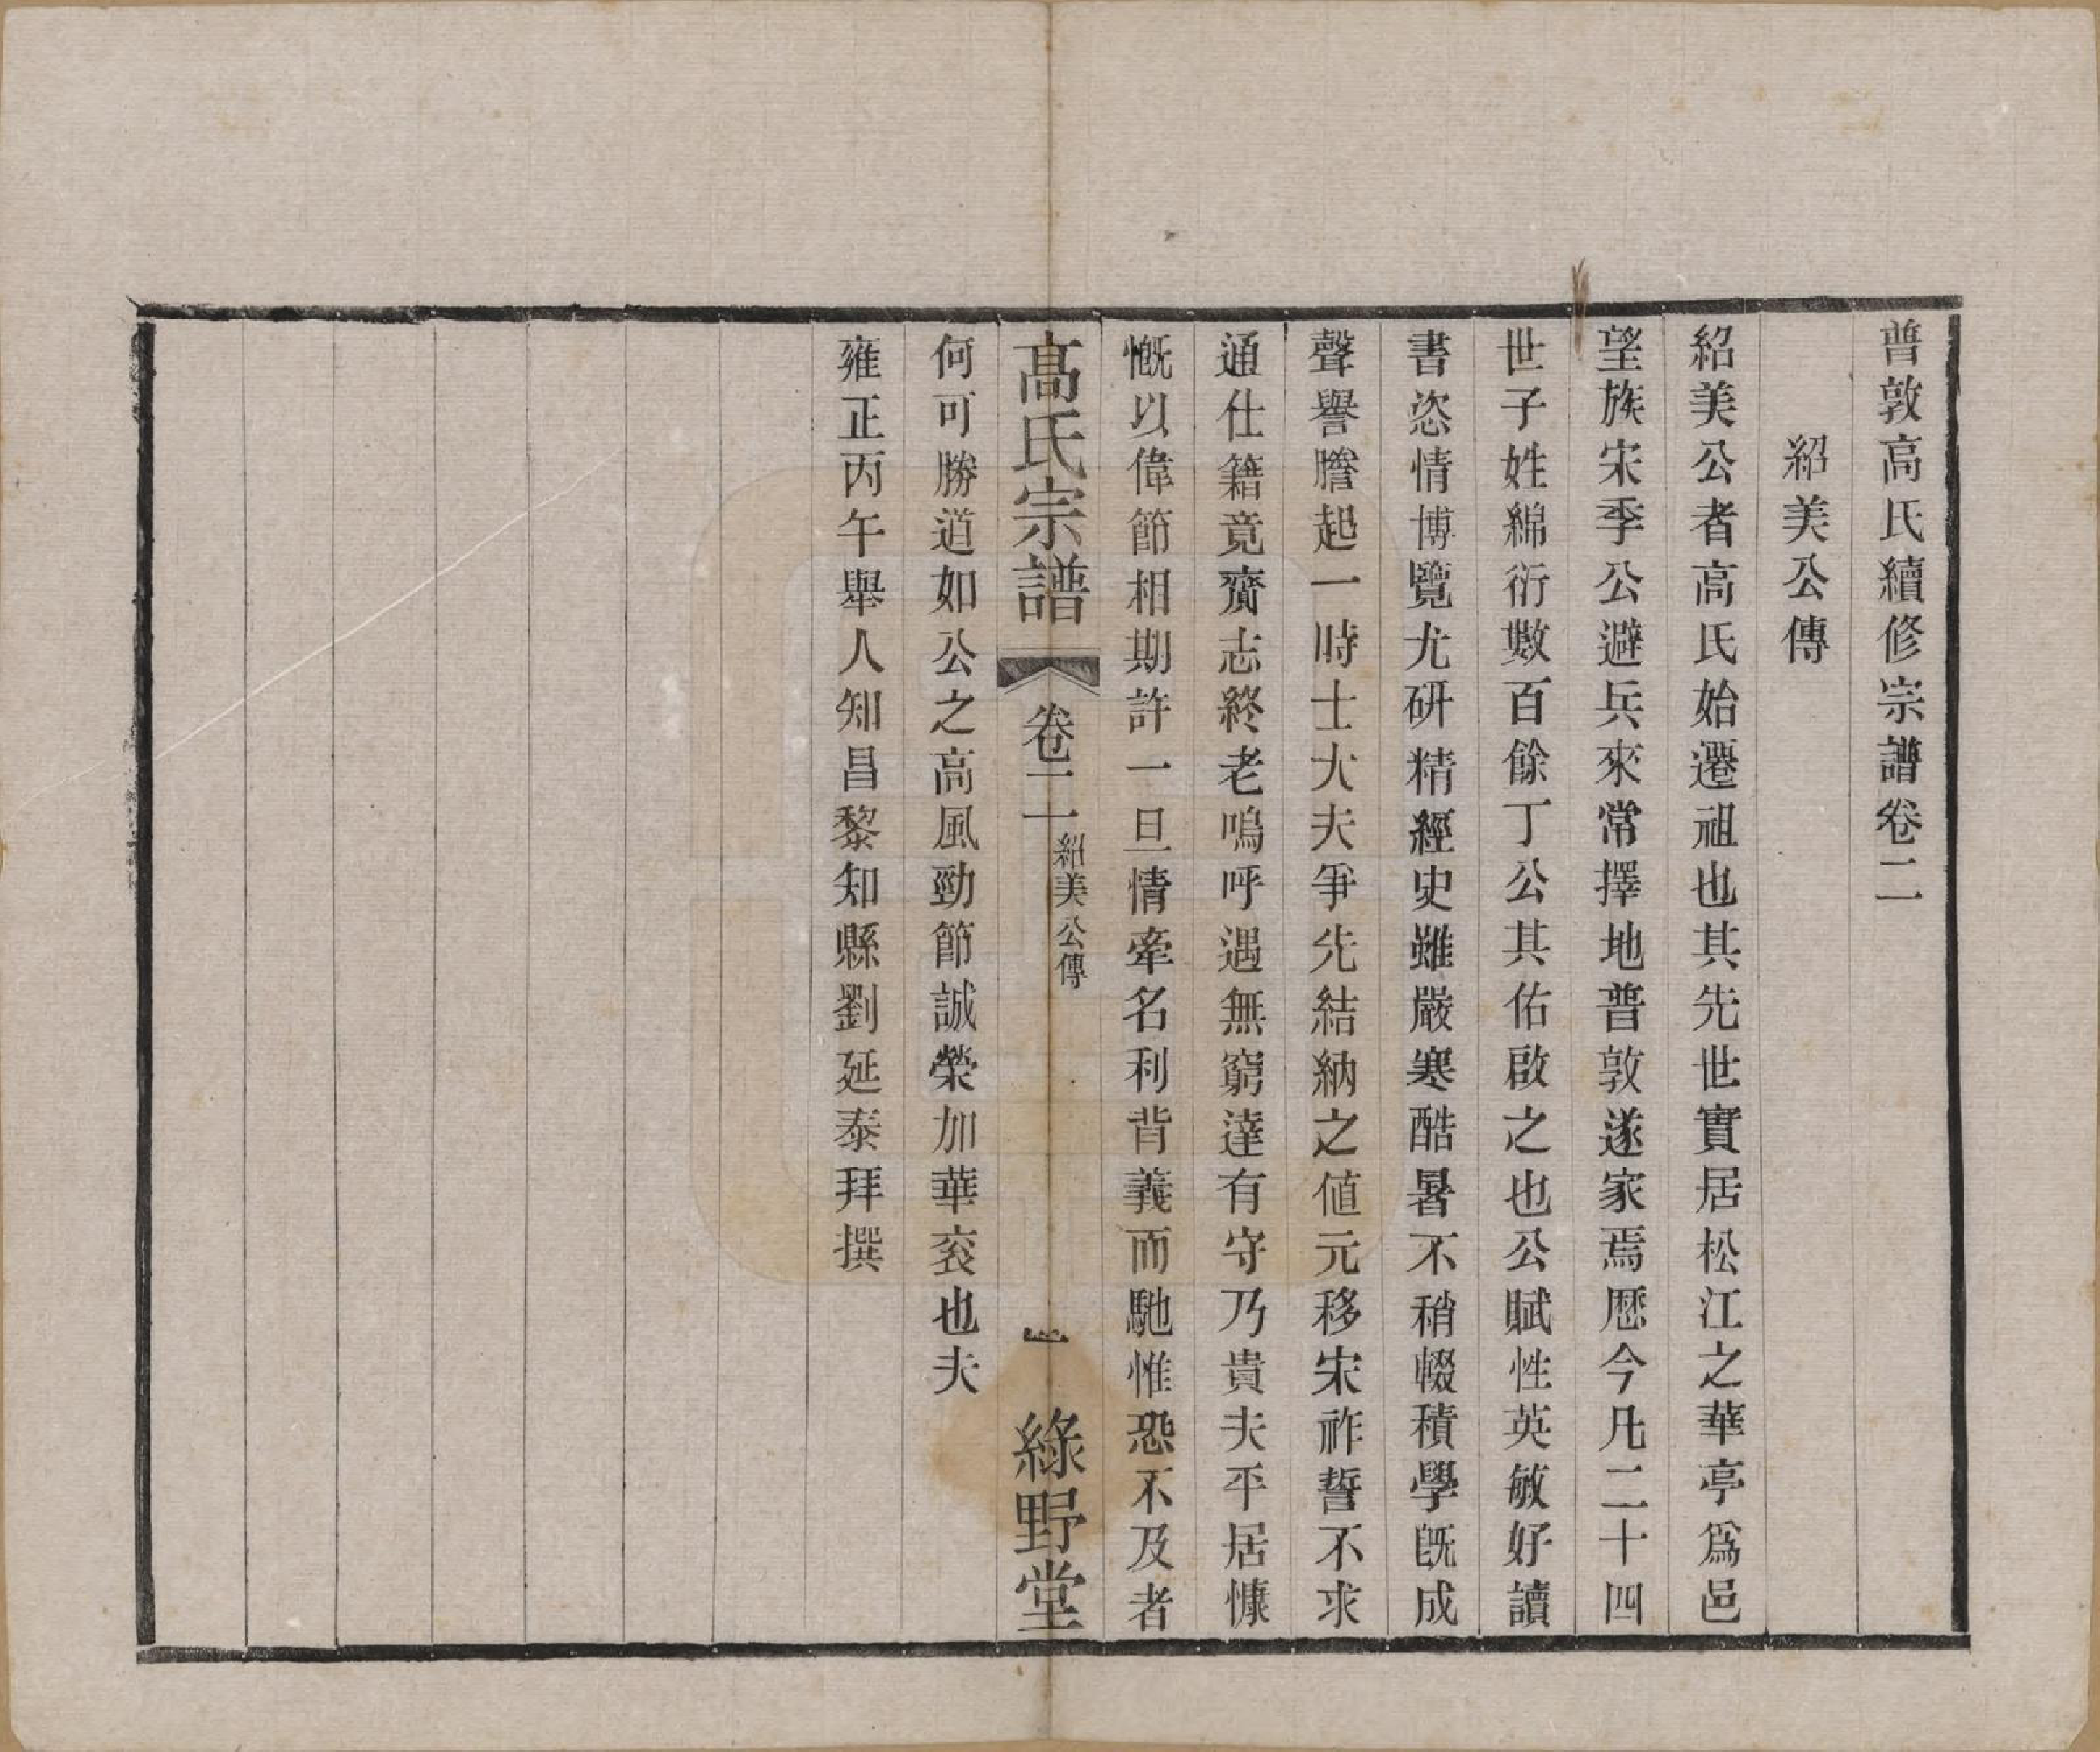 普敦高氏續修宗譜卷二
紹美公傳
紹美公者高氏始遷祖也其先世實居松江之華亭爲邑
望族宋季公避兵來常擇地普敦遂家焉歷今凡二十四
世子姓綿衍數百餘丁公其佑啟之也公賦性英敏好讀
書恣情博覽尤硏精經史雖嚴寒酷暑不稍輟積學旣成
聲譽謄起一時士大夫爭先結納之値元移宋祚誓不求
通仕籍竟齎志終老嗚呼遇無窮達有守乃貴夫平居慷
慨以偉節相期許一旦情牽名利背義而馳惟恐不及者
高氏宗譜 卷二 紹美公傳 一 綠野堂
何可勝道如公之高風勁節誠榮加華衮也夫
雍正丙午舉人知昌黎知縣劉延泰拜撰